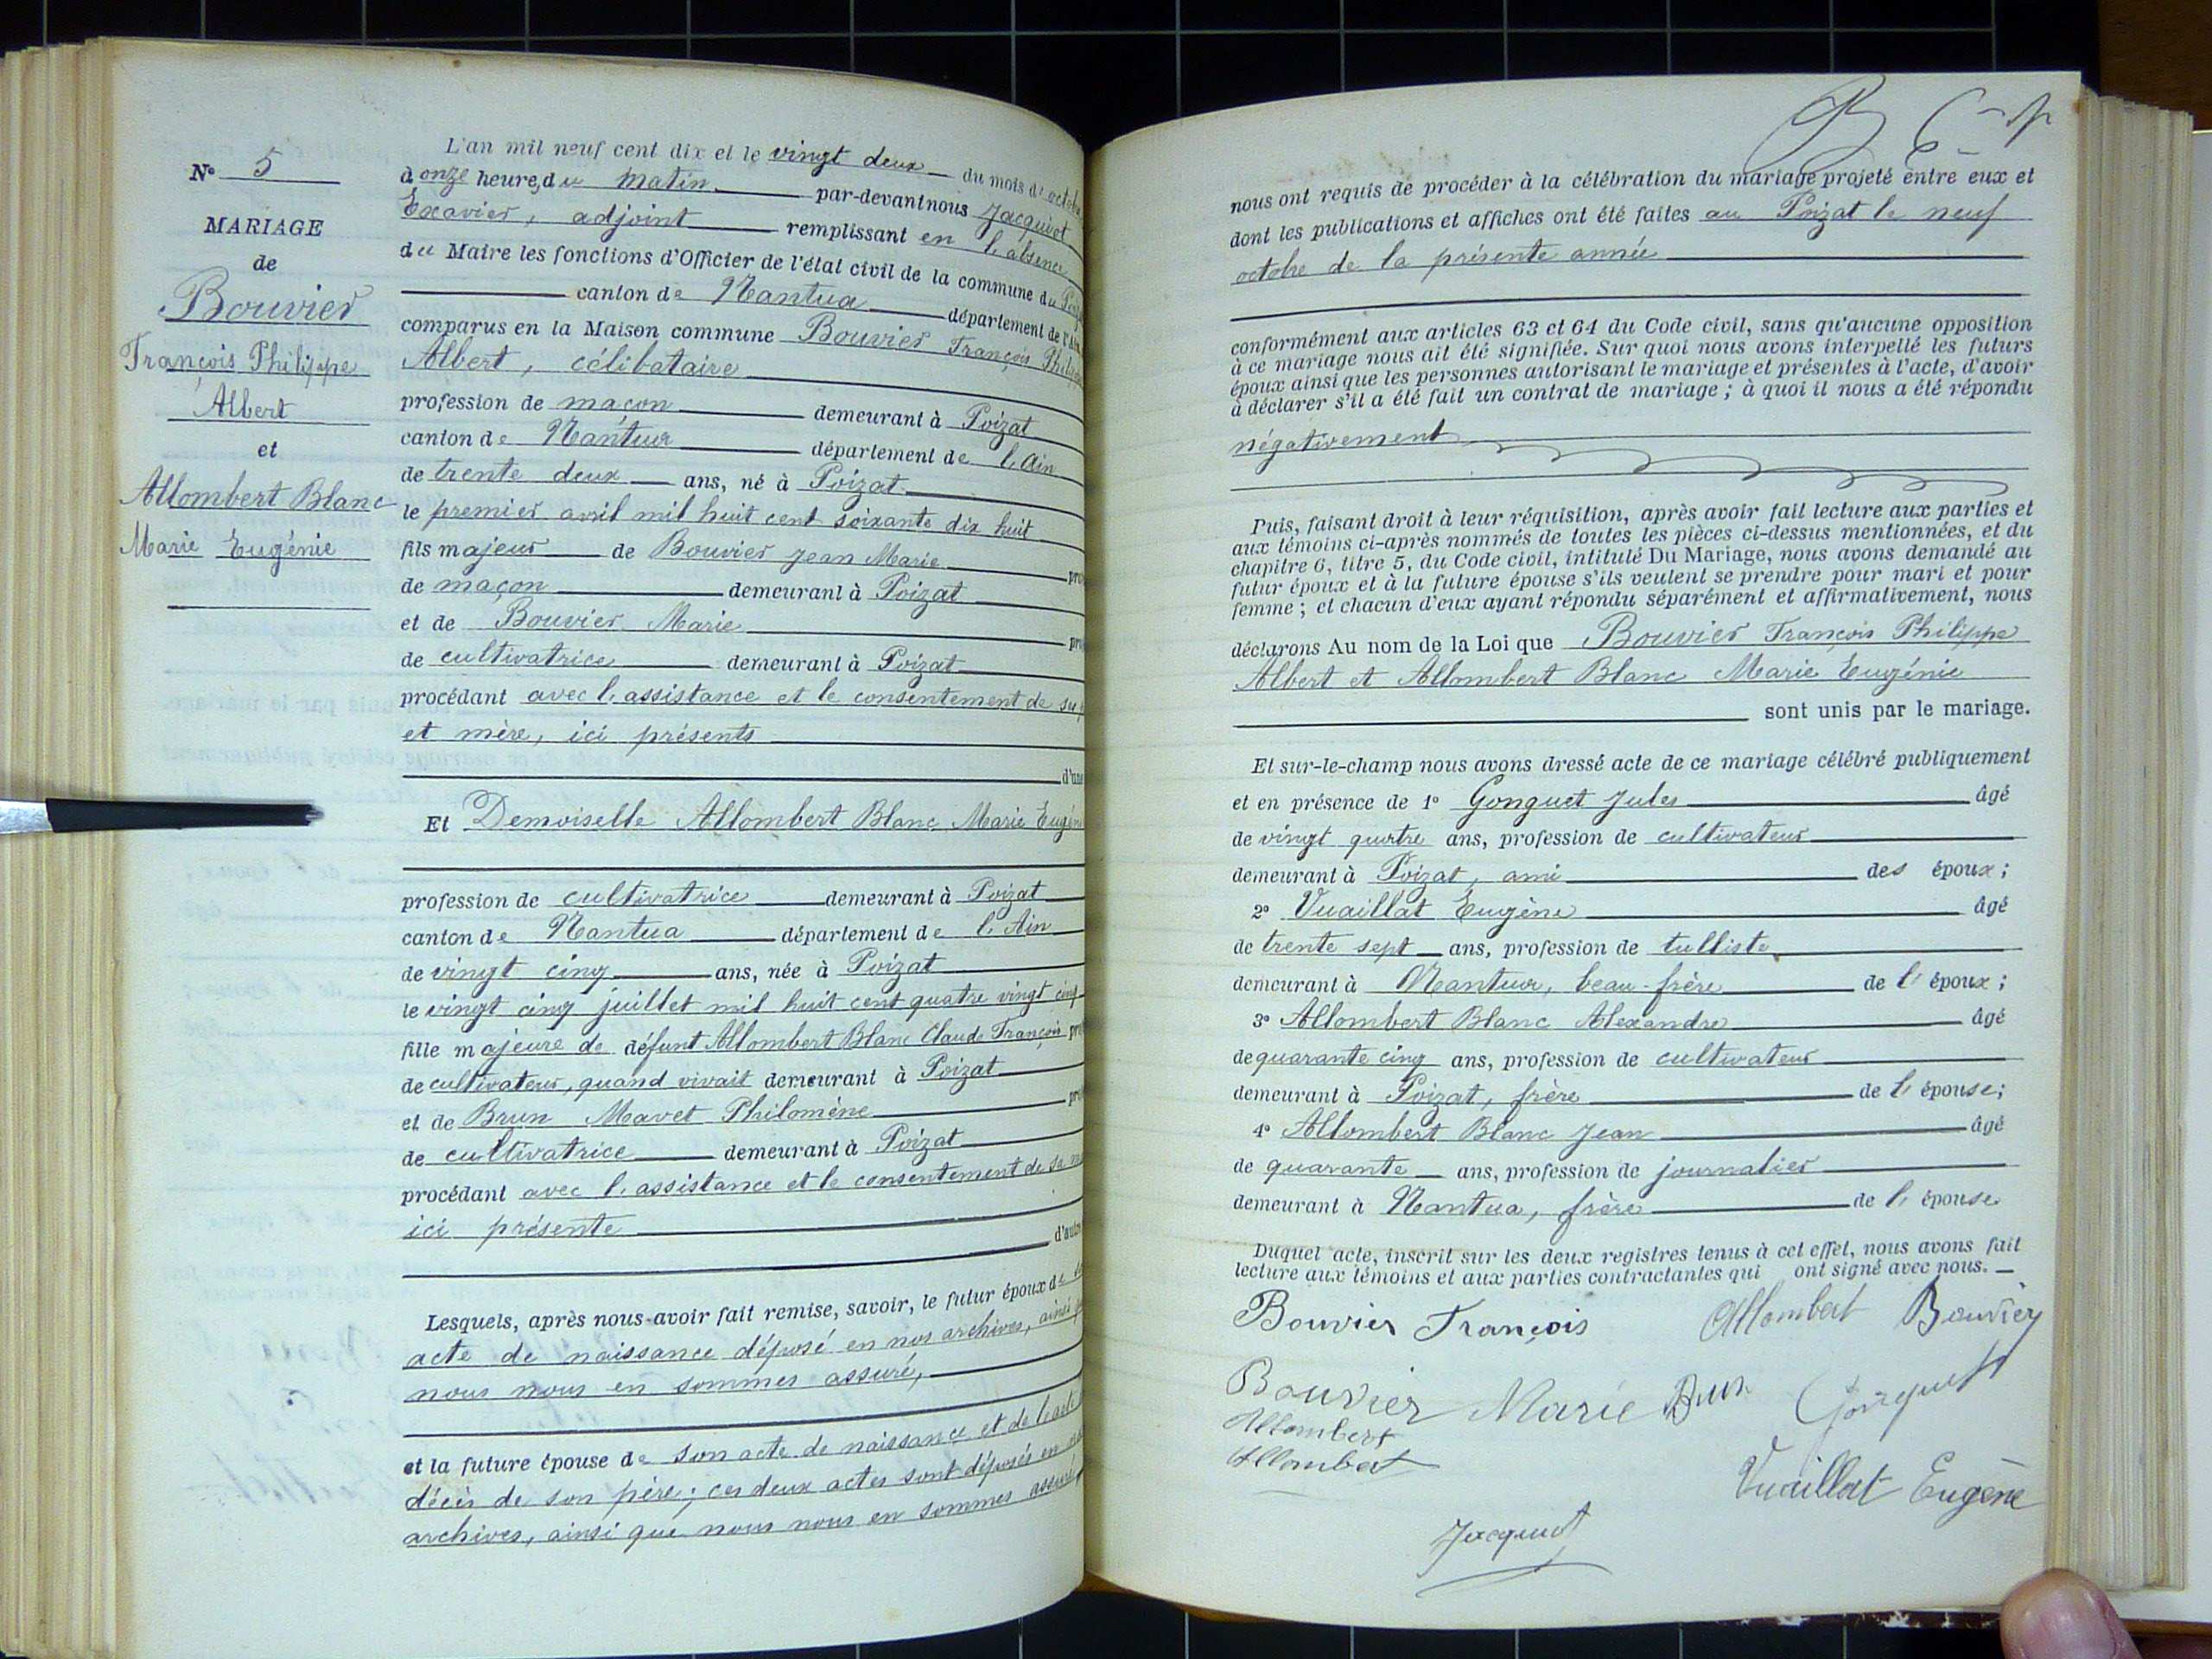 N° 5
MARIAGE
de
Bouvier
François Philippe
Albert
et
Allombert Blanc
Marie Eugénie
L'an mil neuf cent dix et le vingt deux du mois d'octobre
à onze heures du matin par-devant nous Jacquinot
Exavier, adjoint remplissant en l'absence
du Maire les fonctions d'Officier de l'état civil de la commune du
canton de Nantua département de l'Ain
comparus en la Maison commune Bouvier François
Albert, célibataire
profession de maçon demeurant à Poizat
canton de Nantua département de l'Ain
de trente deux ans, né à Poizat
le premier avril mil huit cent soixante dix huit
fils majeur de Bouvier Jean Marie
de maçon demeurant à Poizat
et de Bouvier Marie
de cultivatrice demeurant à Poizat
procédant avec l'assistance et le consentement de
et mère, ici présents
d'une
Et Demoiselle Allombert Blanc Marie
profession de cultivatrice demeurant à Poizat
canton de Nantua département de l'Ain
de vingt cinq ans, née à Poizat
le vingt cinq juillet mil huit cent quatre vingt cinq
fille majeure de défunt Allombert Blanc Claude François
de cultivateur, quand vivait demeurant à Poizat
et de Brun Mavet Philomène
de cultivatrice demeurant à Poizat
procédant avec l'assistance et le consentement de sa
ici présente
Lesquels, après nous avoir fait remise, savoir, le futur époux de
acte de naissance déposé en nos archives, ainsi
nous nous en sommes assuré,
et la future épouse de son acte de naissance et de l'acte
décès de son père; ces deux actes sont déposés en
archives, ainsi que nous nous en sommes assuré
nous ont requis de procéder à la célébration du mariage projeté entre eux et
dont les publications et affiches ont été faites au Poizat le neuf
octobre de la présente année
conformément aux articles 63 et 64 du Code civil, sans qu'aucune opposition
à ce mariage nous ait été signifiée. Sur quoi nous avons interpellé les futurs
époux ainsi que les personnes autorisant le mariage et présentes à l'acte, d'avoir
à déclarer s'il a été fait un contrat de mariage; à quoi il nous a été répondu
négativement
Puis, faisant droit à leur réquisition, après avoir fait lecture aux parties et
aux témoins ci-après nommés de toutes les pièces ci-dessus mentionnées, et du
chapitre 6, titre 5, du Code civil, intitulé Du Mariage, nous avons demandé au
futur époux et à la future épouse s'ils veulent se prendre pour mari et pour
femme; et chacun d'eux ayant répondu séparément et affirmativement, nous
déclarons Au nom de la Loi que Bouvier François Philippe
Albert et Allombert Blanc Marie Eugénie
sont unis par le mariage.
Et sur-le-champ nous avons dressé acte de ce mariage célébré publiquement
et en présence de 1° Gonguet Jules âgé
de vingt quatre ans, profession de cultivateur
demeurant à Poizat, ami des époux;
2° Vuaillat Eugène âgé
de trente sept ans, profession de tulliste
demeurant à Nantua, beau-frère de l'époux;
3° Allombert Blanc Alexandre âgé
de quarante cinq ans, profession de cultivateur
demeurant à Poizat, frère de l'épouse;
4° Allombert Blanc Jean âgé
de quarante ans, profession de journalier
demeurant à Nantua, frère de l'épouse
Duquel acte, inscrit sur les deux registres tenus à cet effet, nous avons fait
lecture aux témoins et aux parties contractantes qui ont signé avec nous.
Bouvier François Allombert Bouvier
Bouvier Marie Brun Gonguet
Allombert
Allombert
Vuaillat Eugène
Jacquinot